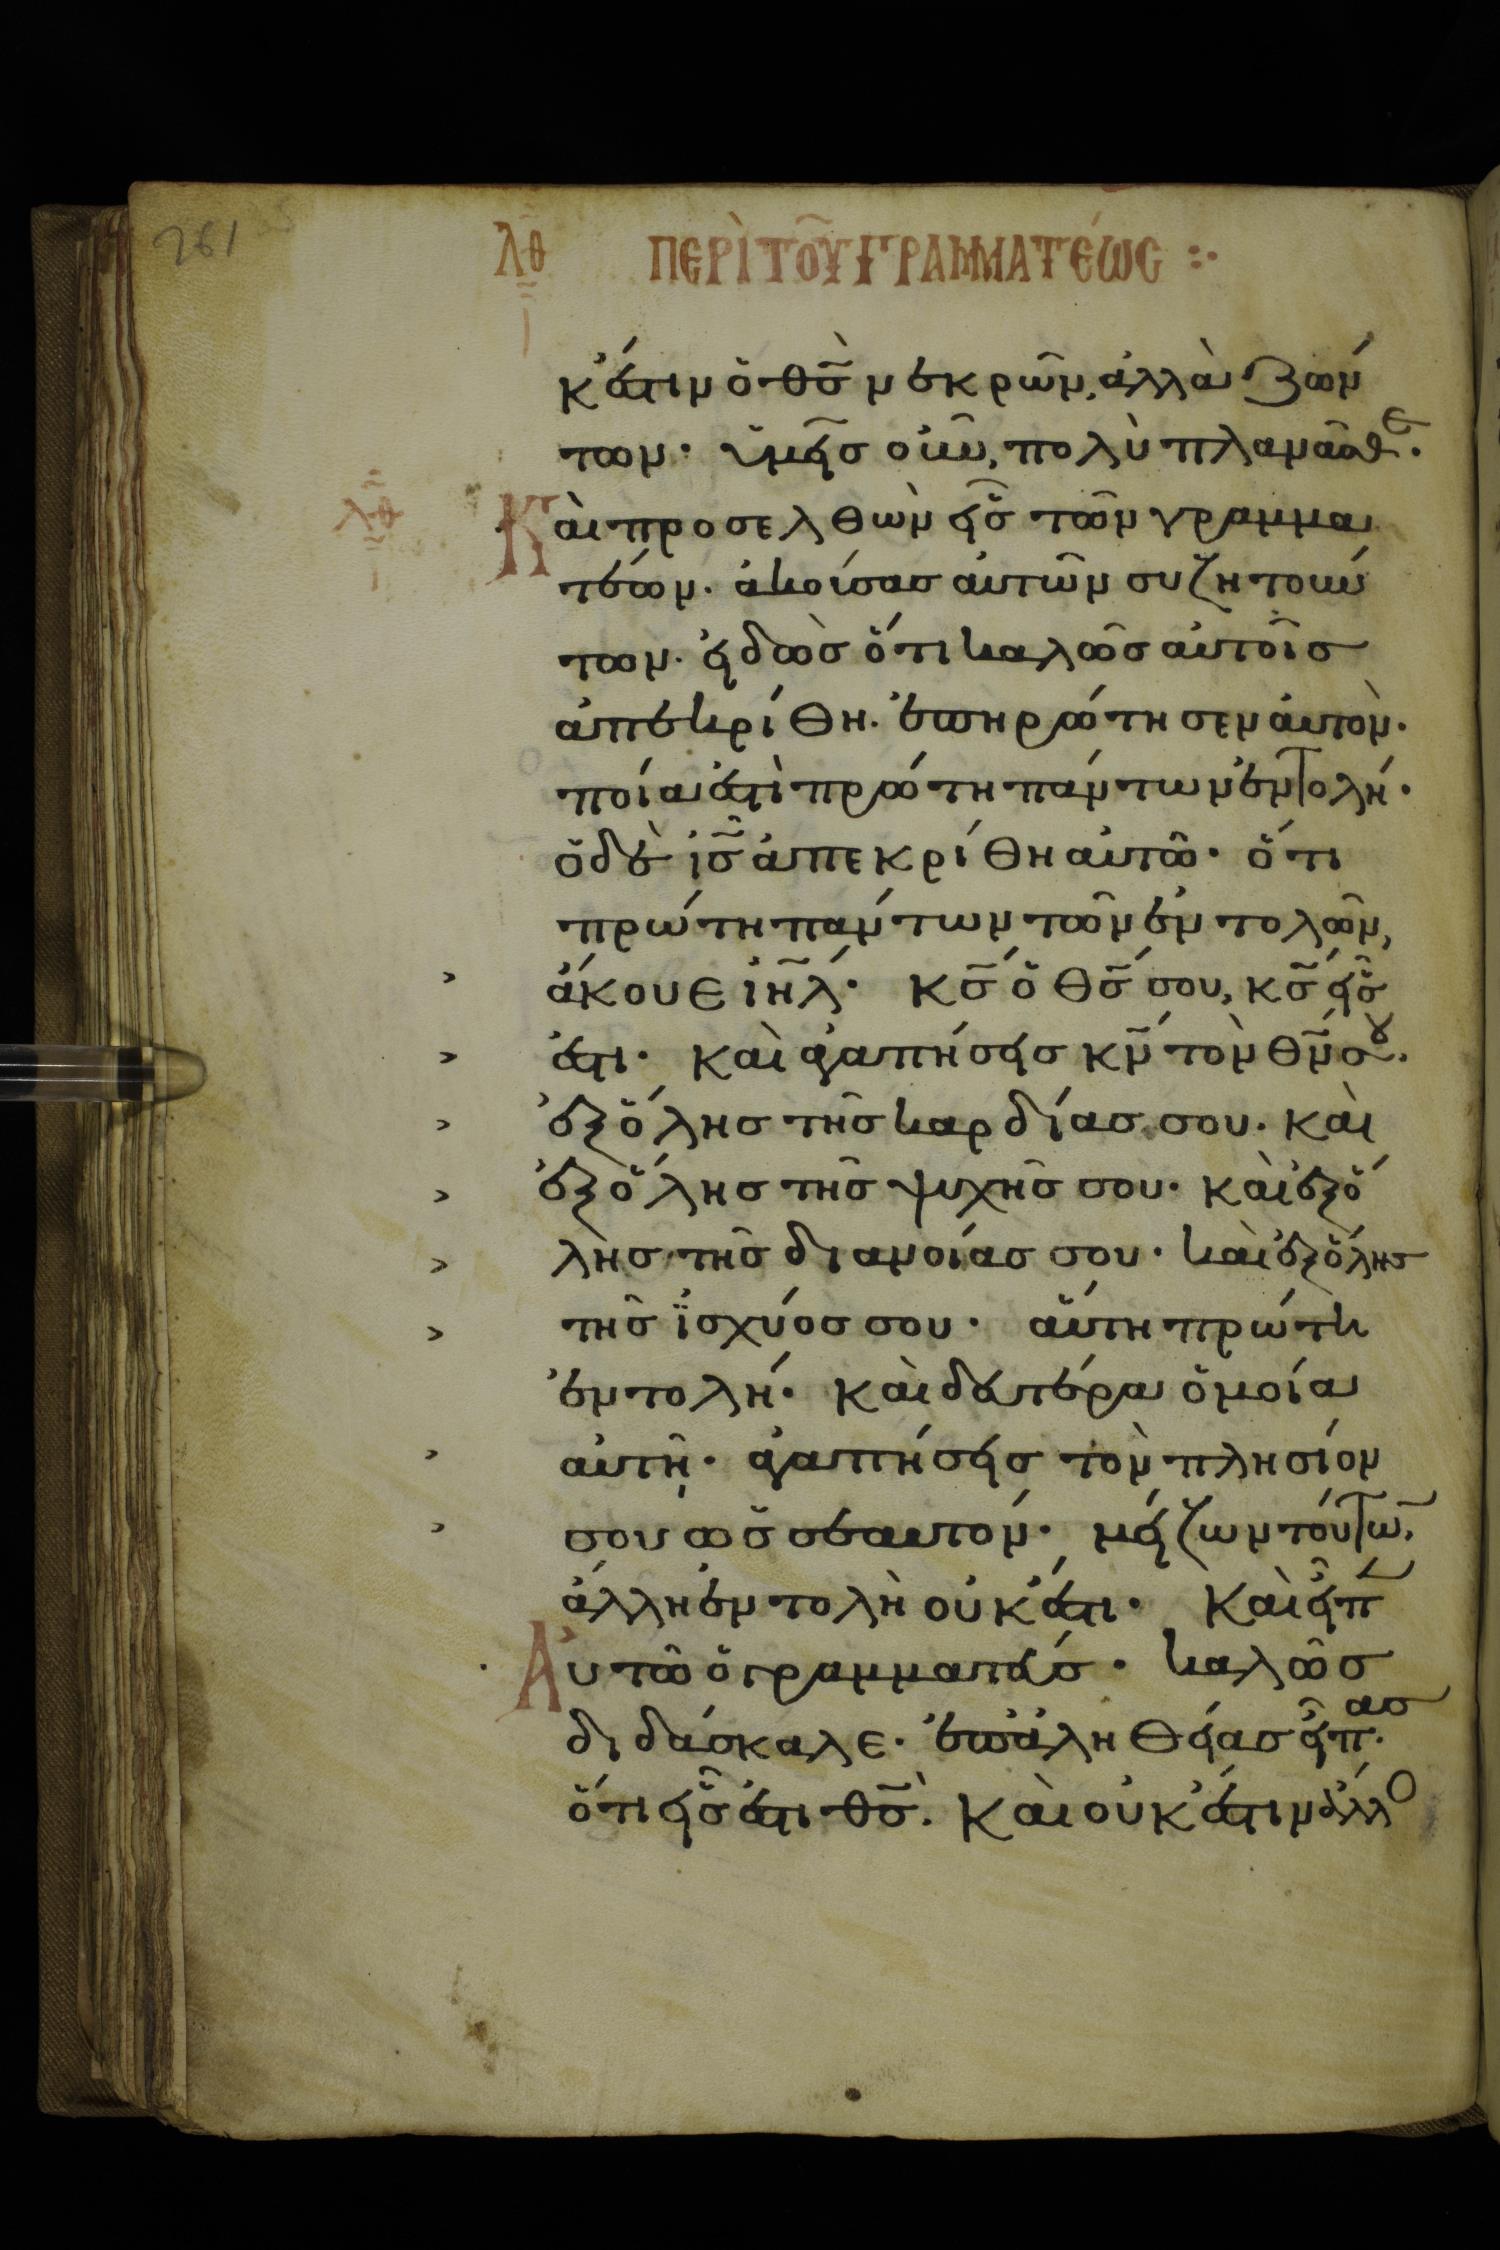 261
λθ ΠΕΡῚ ΤΟῦ ΓΡΑΜΜΑΤΈΩC
κ ἔστιν ὁ θσ̄ νεκρῶν, ἀλλὰ ζών
των· ὑμεῖσ οὖν, πολὺ πλανᾶσθε·
λθ Καὶ προσελθὼν εἷσ τῶν γραμμα
τέων· ἀκούσασ αὐτῶν συζητούν
των· εἰδὼσ ὅτι καλῶσ αὐτοῖσ
ἀπεκρίθη· ἐπηρώτησεν αὐτὸν·
ποία ἐστὶ πρώτη πάντων ἐντολή·
ὁ δὲ ισ̄ ἀπεκρίθη αὐτῶ· ὅτι
πρώτη πάντων τῶν ἐντολῶν,
> ἄκουε ιηλ̄· κσ̄ ὁ θσ̄ σου, κσ̄ εἷσ
> ἐστι· καὶ ἀγαπήσεισ κν̄ τὸν θν̄ σου·
> ἐξ ὅλησ τῆσ καρδίασ σου· καὶ
> ἐξ ὅλησ τῆσ ψυχῆσ σου· καὶ ἐξ ὅ
> λησ τῆσ διανοίασ σου· καὶ ἐξ ὅλησ
> τῆσ ἰσχύοσ σου· αὕτη πρώτη
ἐντολή· καὶ δευτέρα ὁμοία
> αὐτῆ· ἀγαπήσεισ τὸν πλησίον
> σου ὡσ σεαυτόν· μείζων τούτων,
ἄλλη ἐντολὴ οὐκ ἔστι· Καὶ εἶπ
Αὐτῶ ὁ γραμματεύσ· καλῶσ
διδάσκαλε· ἐπ ἀληθείασ εἶπασ·
ὅτι εἷσ ἐστι θσ̄· καὶ οὐκ ἔστιν ἄλλο